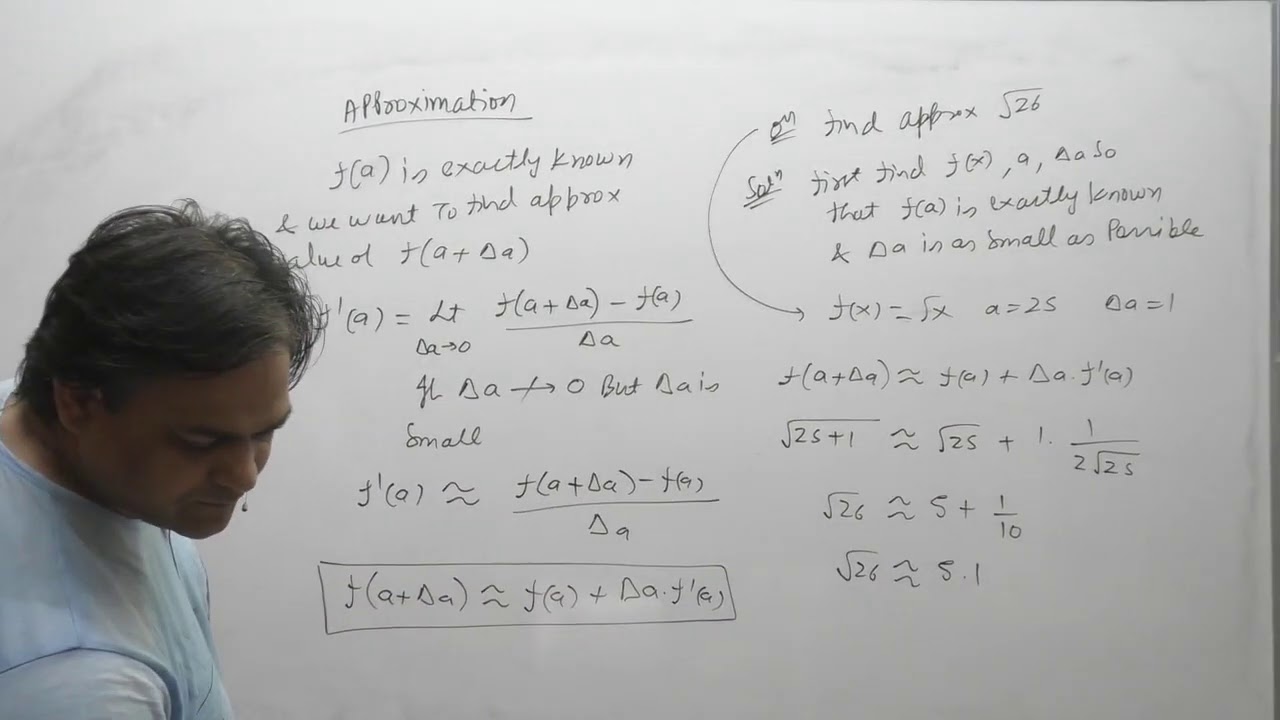 Approximation
f(a) is exactly known
& we want To find approx
value of f(a + Δa)
f'(a) = Lt Δa→0 (f(a+Δa) − f(a)) / Δa
If Δa ↛ 0 But Δa is
small
f'(a) ≈ (f(a+Δa) − f(a)) / Δa
f(a+Δa) ≈ f(a) + Δa.f'(a)
Qn find approx √26
Soln first find f(x), a, Δa so
that f(a) is exactly known
& Δa is as small as Possible
f(x) = √x a = 25 Δa = 1
f(a+Δa) ≈ f(a) + Δa.f'(a)
√25+1 ≈ √25 + 1. 1 / 2√25
√26 ≈ 5 + 1/10
√26 ≈ 5.1